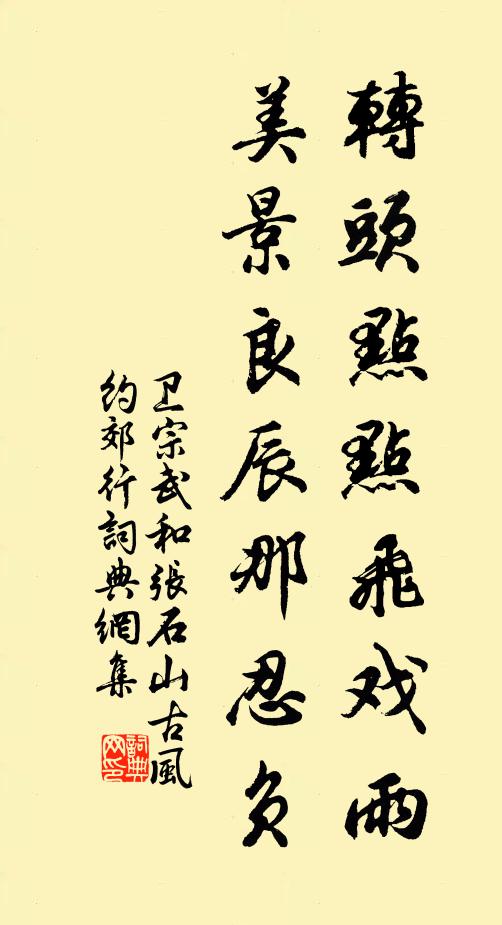 轉頭點點飛戏雨
美景良辰那忍負
卫宗武和張石山古風
約郊行詞典網集
詞典
网印